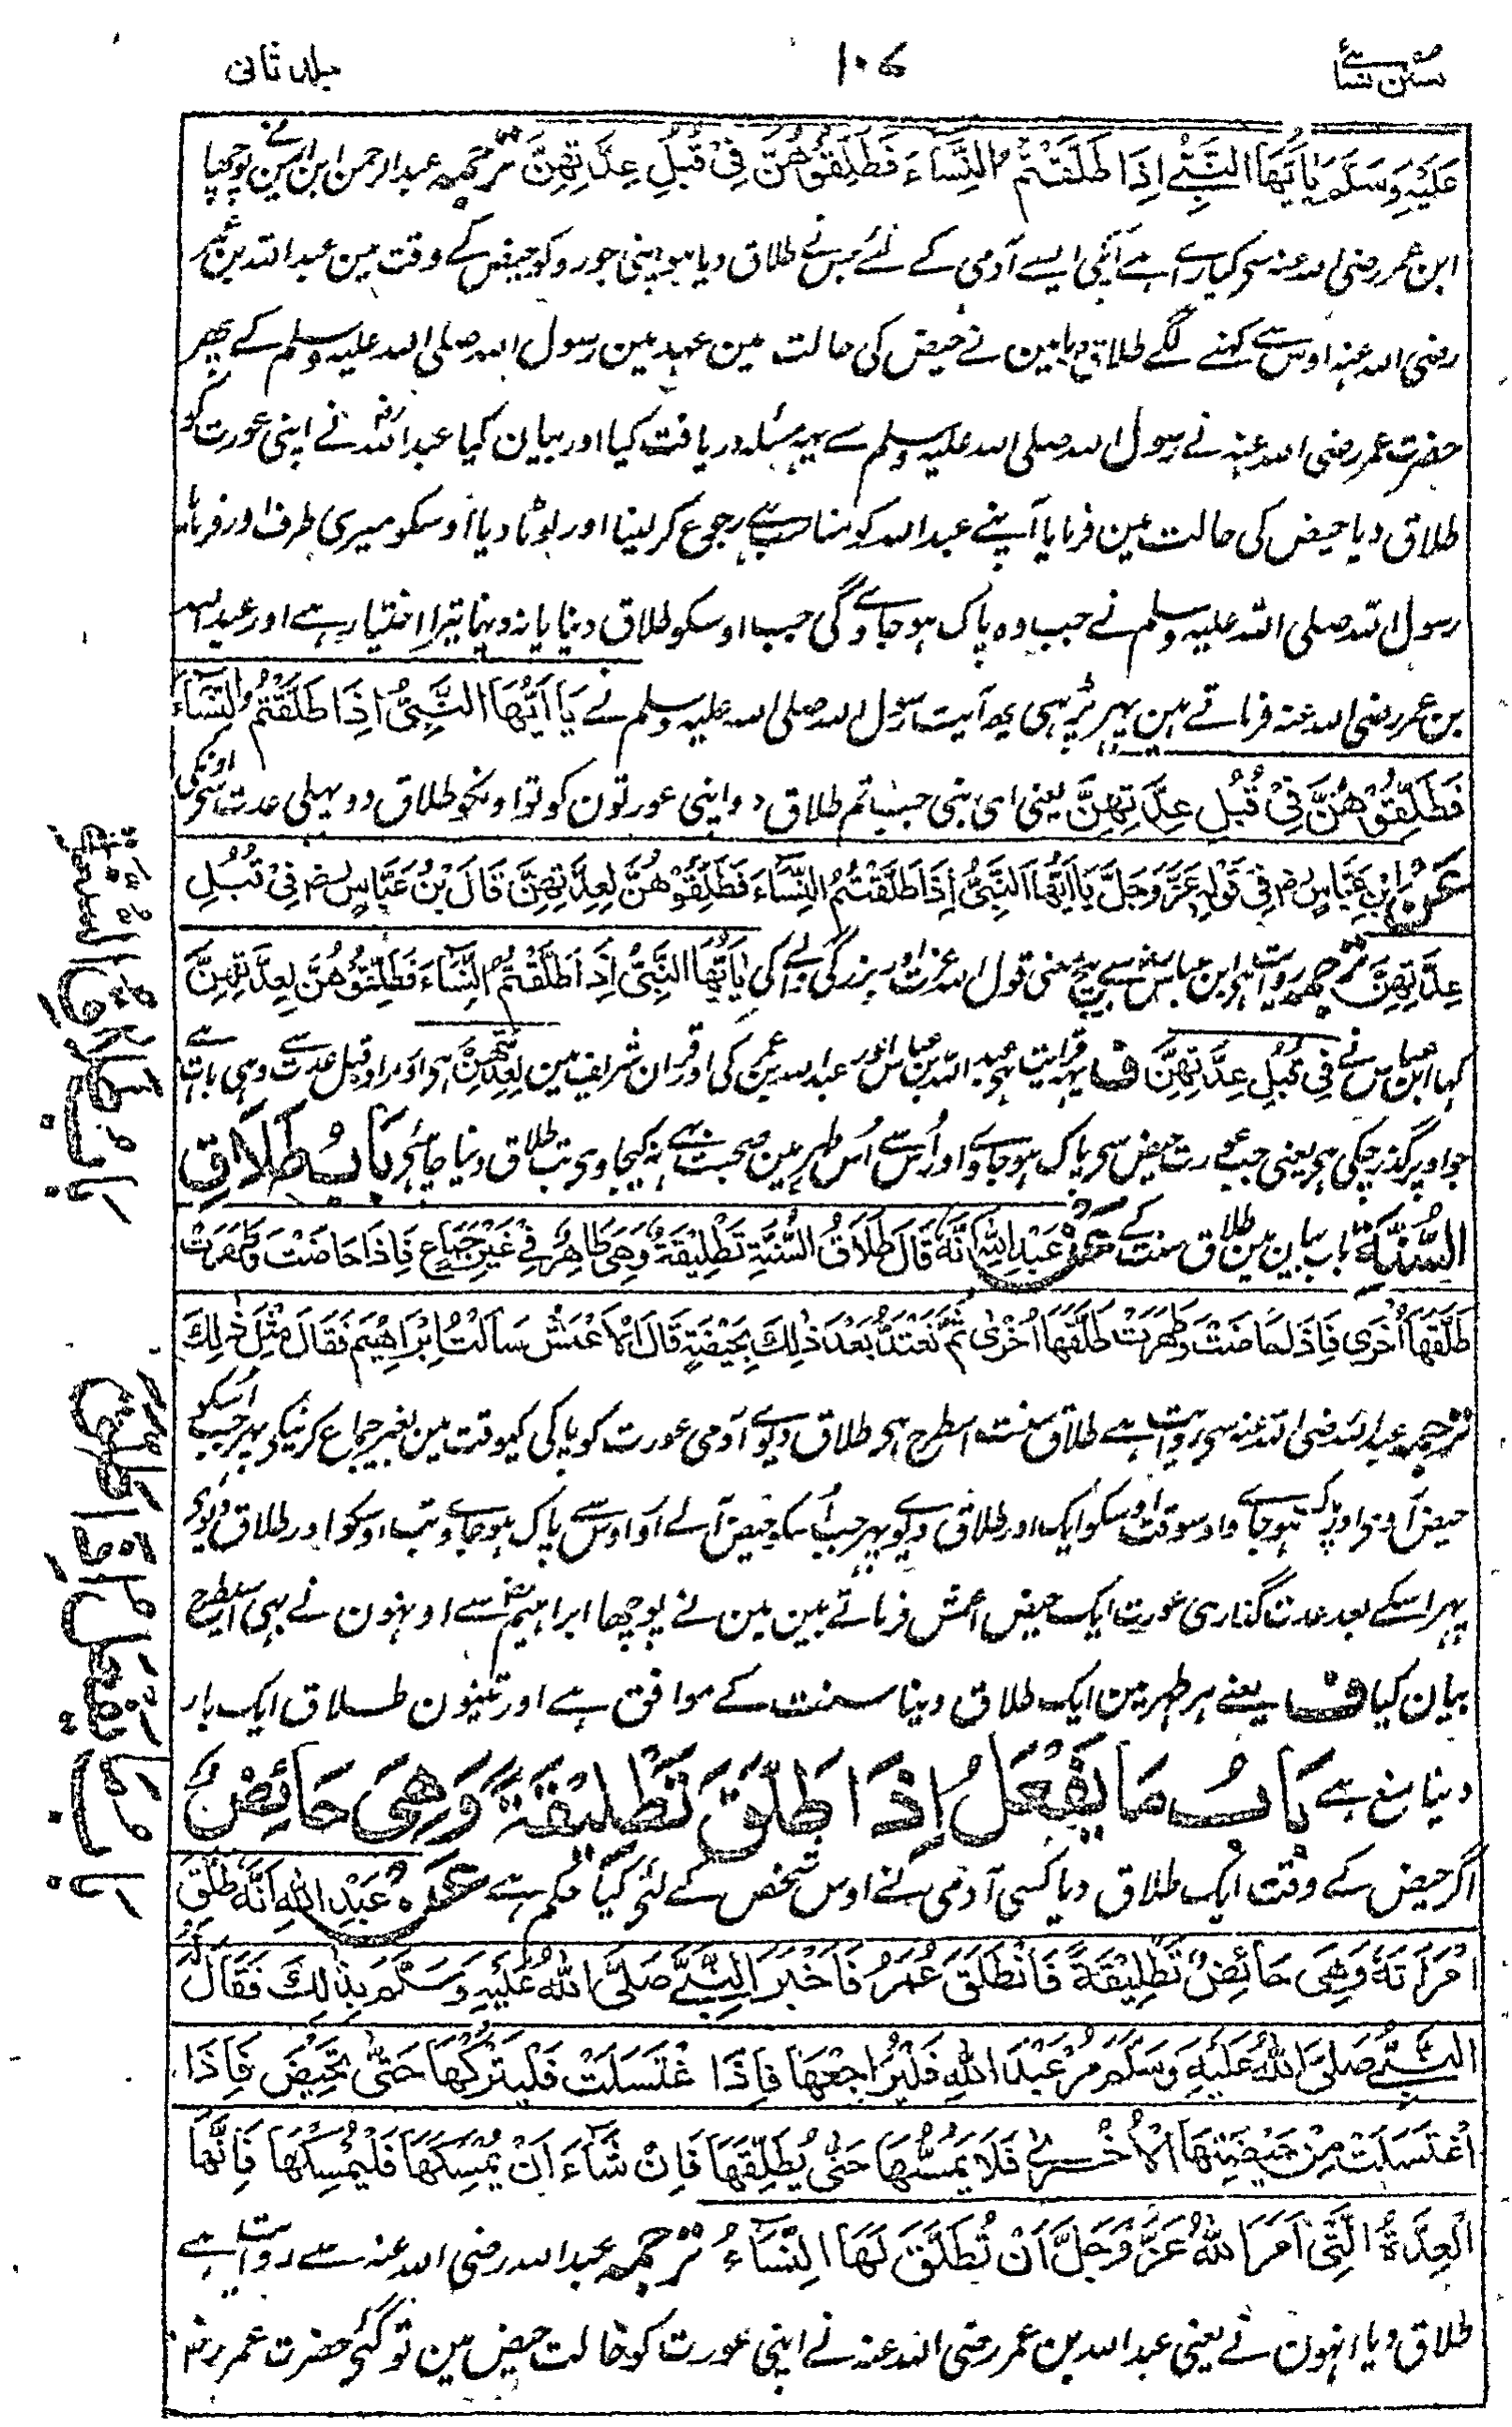 سنن نسائی
۱۰۷
جلد ثانی
عَلَیْہِ وَسَلَّمَ یٰاَیُّهَا النَّبِیُّ اِذَا طَلَّقْتُمُ النِّسَاءَ فَطَلِّقُوْهُنَّ فِیْ قُبُلِ عِدَّتِهِنَّ ترجمہ عبد الرحمن ابن ایمن نے پوچھا
ابن عمر رضی اللہ عنہ سے کیا رائے ہے آپکی ایسے آدمی کے لئے جس نے طلاق دیا ہو اپنی جورو کو حیض کے وقت مین عبد اللہ بن عمر
رضی اللہ عنہ اوس سے کہنے لگے طلاق دیا مین نے حیض کی حالت مین عہد مین رسول اللہ صلی اللہ علیہ وسلم کے پھر
حضرت عمر رضی اللہ عنہ نے رسول اللہ صلی اللہ علیہ وسلم سے یہہ مسئلہ دریافت کیا اور بیان کیا عبد اللہ رض نے اپنی عورت کو
طلاق دیا حیض کی حالت مین فرمایا آپنے عبد اللہ کو مناسب ہے رجوع کر لینا اور لوٹا دیا اوسکو میری طرف اور فرمایا
رسول اللہ صلی اللہ علیہ وسلم نے جب وہ پاک ہو جاوے گی جب اوسکو طلاق دینا یا نہ دینا تیرا اختیار ہے اور عبد اللہ
بن عمر رضی اللہ عنہ فرماتے ہین پہر پڑہی یہ آیت رسول اللہ صلی اللہ علیہ وسلم نے یَا اَیُّهَا النَّبِیُّ اِذَا طَلَّقْتُمُ النِّسَاءَ
فَطَلِّقُوْهُنَّ فِیْ قُبُلِ عِدَّتِهِنَّ یعنی ای نبی جب تم طلاق دو اپنی عورتون کو تو اونکو طلاق دو پہلی عدت سے اونکی
عَنْ ابْنِ عَبَّاسٍ رض فِیْ قَوْلِهِ عَزَّ وَجَلَّ یَا اَیُّهَا النَّبِیُّ اِذَا طَلَّقْتُمُ النِّسَاءَ فَطَلِّقُوْهُنَّ لِعِدَّتِهِنَّ قَالَ بْنُ عَبَّاسٍ رض فِیْ قُبُلِ
عِدَّتِهِنَّ ترجمہ روایت ہے ابن عباس رض سے بیچ معنی قول اللہ عزت اور بزرگی والے کی یٰاَیُّهَا النَّبِیُّ اِذَا طَلَّقْتُمُ النِّسَاءَ فَطَلِّقُوْهُنَّ لِعِدَّتِهِنَّ
کہا ابن عباس نے فِیْ قُبُلِ عِدَّتِهِنَّ ف یہہ قرایت ہے عبد اللہ بن عباس اور عبد اللہ بن عمر کی اور قران شریف مین لِعِدَّتِهِنَّ ہے اور مراد قبل عدت سے وہی بات ہے
جو اوپر گذر چکی ہے یعنی جب عورت حیض سے پاک ہو جاوے اور اُس سے اُس طہر مین صحبت بہی نہ کیجاوے تب طلاق دینا چاہئے بَابُ طَلَاقِ
السُّنَّةِ باب بیان مین طلاق سنت کے عَنْ عَبْدِ اللهِ اَنَّهُ قَالَ طَلَاقُ السُّنَّةِ تَطْلِیْقَةٌ وَهِیَ طَاهِرٌ فِیْ غَیْرِ جِمَاعٍ فَاِذَا حَاضَتْ وَطَهُرَتْ
طَلَّقَهَا اُخْرٰی فَاِذَا حَاضَتْ وَطَهُرَتْ طَلَّقَهَا اُخْرٰی ثُمَّ تَعْتَدُّ بَعْدَ ذٰلِكَ بِحَیْضَةٍ قَالَ الْاَعْمَشُ سَاَلْتُ اِبْرَاهِیْمَ فَقَالَ مِثْلَ ذٰلِكَ
ترجمہ عبد اللہ رضی اللہ عنہ سے روایت ہے طلاق سنت اسطرح ہے طلاق دیوے آدمی عورت کو پاکی کیوقت مین بغیر جماع کرنیکے پہر جب اُسکو
حیض آوے اور پاک ہو جاوے اوسوقت اوسکو ایک اور طلاق دیوے پہر جب اُسکو حیض آلے اور اوس سے پاک ہو جاوے تب اوسکو اور طلاق دیوے
پہر اسکے بعد عدت گذاری عورت ایک حیض اعمش فرماتے ہین مین نے پوچھا ابراہیم سے اونہون نے بہی اسیطرح
بیان کیا ف یعنے ہر طہر مین ایک طلاق دینا سنت کے موافق ہے اور تینون طلاق ایک بار
دینا منع ہے بَابُ مَا یَفْعَلُ اِذَا طَلَّقَ تَطْلِیْقَةً وَهِیَ حَائِضٌ
اگر حیض کے وقت ایک طلاق دیا کسی آدمی نے اوس شخص کے لئے کیا حکم ہے عَنْ عَبْدِ اللهِ اَنَّهُ طَلَّقَ
امْرَاَتَهُ وَهِیَ حَائِضٌ تَطْلِیْقَةً فَانْطَلَقَ عُمَرُ فَاَخْبَرَ النَّبِیَّ صَلَّی اللهُ عَلَیْهِ وَسَلَّمَ بِذٰلِكَ فَقَالَ لَهُ
النَّبِیُّ صَلَّی اللهُ عَلَیْهِ وَسَلَّمَ مُرْ عَبْدَ اللهِ فَلْیُرَاجِعْهَا فَاِذَا غْتَسَلَتْ فَلْیَتْرُكْهَا حَتّٰی تَحِیْضَ فَاِذَا
اغْتَسَلَتْ مِنْ حَیْضَتِهَا الْاُخْرٰی فَلَا یَمَسَّهَا حَتّٰی یُطَلِّقَهَا فَاِنْ شَاءَ اَنْ یُمْسِكَهَا فَلْیُمْسِكْهَا فَاِنَّهَا
الْعِدَّةُ الَّتِیْ اَمَرَ اللهُ عَزَّ وَجَلَّ اَنْ تُطَلَّقَ لَهَا النِّسَاءُ ترجمہ عبد اللہ رضی اللہ عنہ سے روایت ہے
طلاق دیا انہون نے یعنی عبد اللہ بن عمر رضی اللہ عنہ نے اپنی عورت کو حالت حیض مین تو گئے حضرت عمر رض
بَابُ طَلَاقِ السُّنَّةِ
بَابُ مَا یَفْعَلُ اِذَا طَلَّقَ